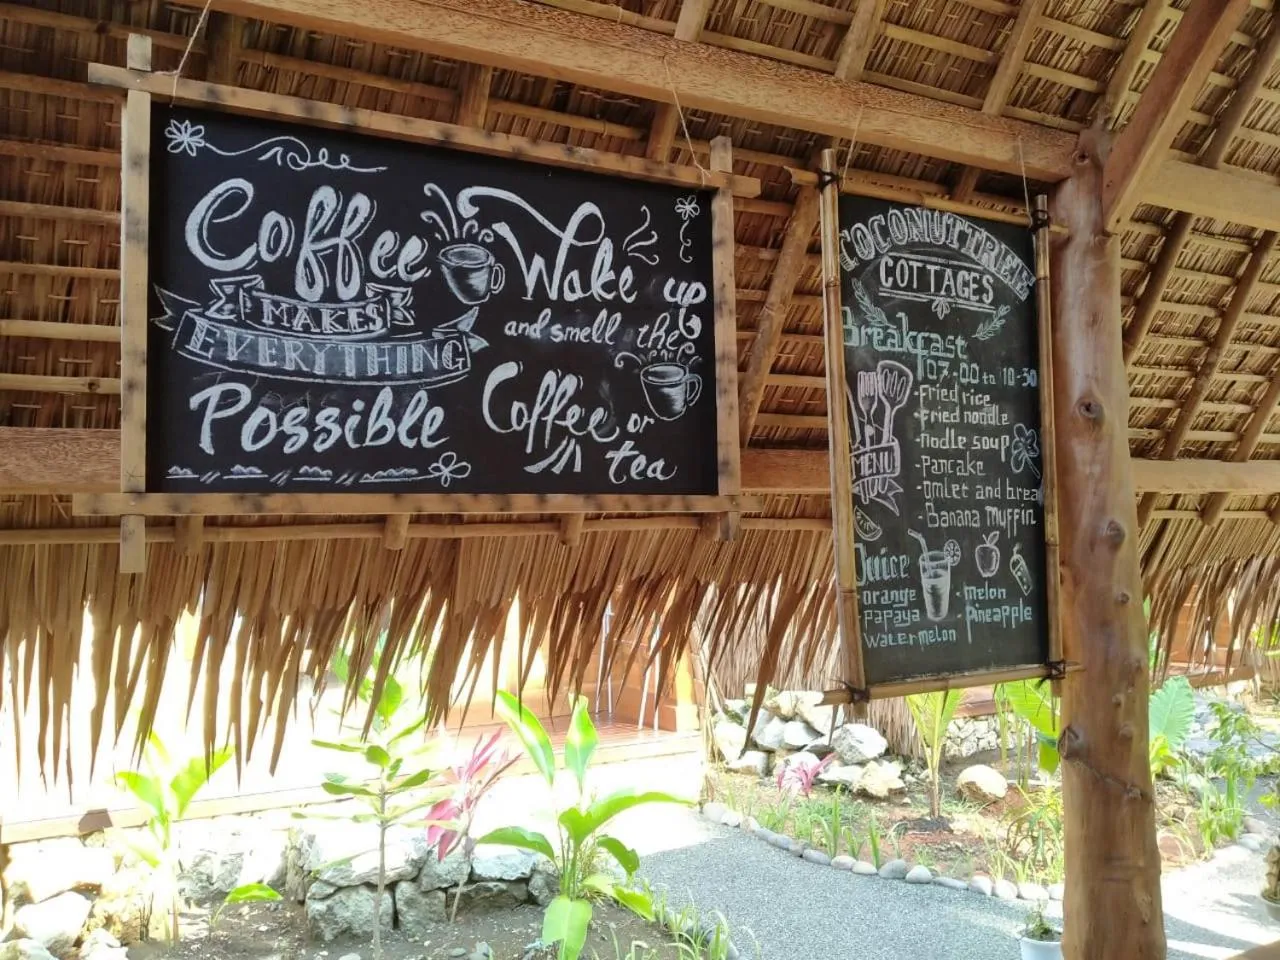 Coffee
MAKES
EVERYTHING
Possible
Wake up
and smell the
Coffee or
tea
COCONUTTREE
COTTAGES
Breakfast
07.00 to 10-30
-fried rice
-fried noodle
-nodle soup
-pancake
-omlet and brea
-Banana Muffin
MENU
Juice
-orange
-papaya
watermelon
-melon
-pineapple